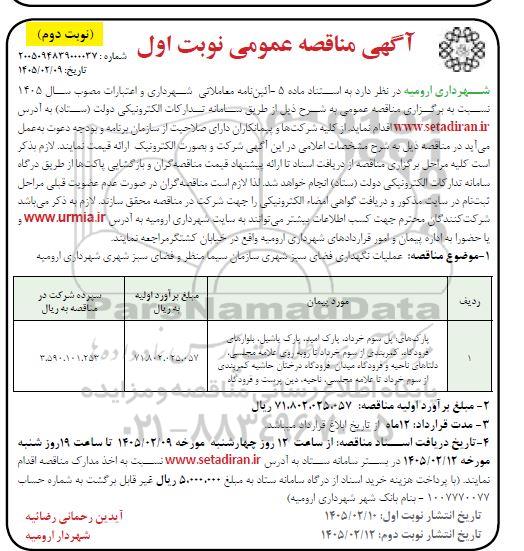 (نوبت دوم)
آگهی مناقصه عمومی نوبت اول
شماره: ۲۰۰۵۰۹۴۸۳۹۰۰۰۰۳۷
تاریخ: ۱۴۰۵/۰۲/۰۹
شهرداری ارومیه در نظر دارد به استناد ماده ۵ -آئین‌نامه معاملاتی شهرداری و اعتبارات مصوب سال ۱۴۰۵
نسبت به برگزاری مناقصه عمومی به شرح ذیل از طریق سامانه تدارکات الکترونیکی دولت (ستاد) به آدرس
www.setadiran.ir اقدام نماید. از کلیه شرکت‌ها و پیمانکاران دارای صلاحیت از سازمان برنامه و بودجه دعوت به‌عمل
می‌آید در مناقصه ذیل به شرح مشخصات اعلامی در این آگهی شرکت و بصورت الکترونیک ارائه قیمت نمایند. لازم بذکر
است کلیه مراحل برگزاری مناقصه از دریافت اسناد تا ارائه پیشنهاد قیمت مناقصه‌گران و بازگشایی پاکت‌ها از طریق درگاه
سامانه تدارکات الکترونیکی دولت (ستاد) انجام خواهد شد. لذا لازم است مناقصه‌گران در صورت عدم عضویت قبلی مراحل
ثبت‌نام در سایت مذکور و دریافت گواهی امضاء الکترونیکی را جهت شرکت در مناقصه محقق سازند. لازم به ذکر می‌باشد
شرکت‌کنندگان محترم جهت کسب اطلاعات بیشتر می‌توانند به سایت شهرداری ارومیه به آدرس www.urmia.ir و
یا حضورا به اداره پیمان و امور قراردادهای شهرداری ارومیه واقع در خیابان کشتگر مراجعه نمایند.
۱-موضوع مناقصه: عملیات نگهداری فضای سبز شهری سازمان سیما منظر و فضای سبز شهری شهرداری ارومیه
ردیف
مورد پیمان
مبلغ برآورد اولیه به ریال
سپرده شرکت در مناقصه به ریال
۱
پارک‌های: پل سوم خرداد، پارک امید، پارک یاشیل، بلوارهای
فرودگاه، کمربندی از سوم خرداد تا روبه روی علامه مجلسی،
دلتاهای ناحیه و فرودگاه میدان فرودگاه درختان حاشیه کمربندی
از سوم خرداد تا علامه مجلسی، ناحیه، دین پرست و فرودگاه
۷۱.۸۰۲.۰۲۵.۰۵۷
۳.۵۹۰.۱۰۱.۲۵۳
ParsNamadData
پایگاه اطلاع رسانی مناقصه و مزایده
۰۲۱-۸۸۳۴۹۶۷۰
۲- مبلغ برآورد اولیه مناقصه: ۷۱.۸۰۲.۰۲۵.۰۵۷ ریال
۳- مدت قرارداد: ۱۲ماه از تاریخ ابلاغ قرارداد میباشد
۴-تاریخ دریافت اسناد مناقصه: از ساعت ۱۲ روز چهارشنبه مورخه ۱۴۰۵/۰۲/۰۹ تا ساعت ۱۹روز شنبه
مورخه ۱۴۰۵/۰۲/۱۲ در بستر سامانه ستاد به آدرس www.setadiran.ir نسبت به اخذ مدارک مناقصه اقدام
نمایند. (با پرداخت هزینه خرید اسناد از درگاه سامانه ستاد به مبلغ ۵.۰۰۰.۰۰۰ ریال غیر قابل برگشت به شماره حساب
۱۰۰۷۷۷۰۰۷۷ - بنام بانک شهر شهرداری ارومیه)
تاریخ انتشار نوبت اول: ۱۴۰۵/۰۲/۱۰
تاریخ انتشار نوبت دوم: ۱۴۰۵/۰۲/۱۲
آیدین رحمانی رضائیه
شهردار ارومیه